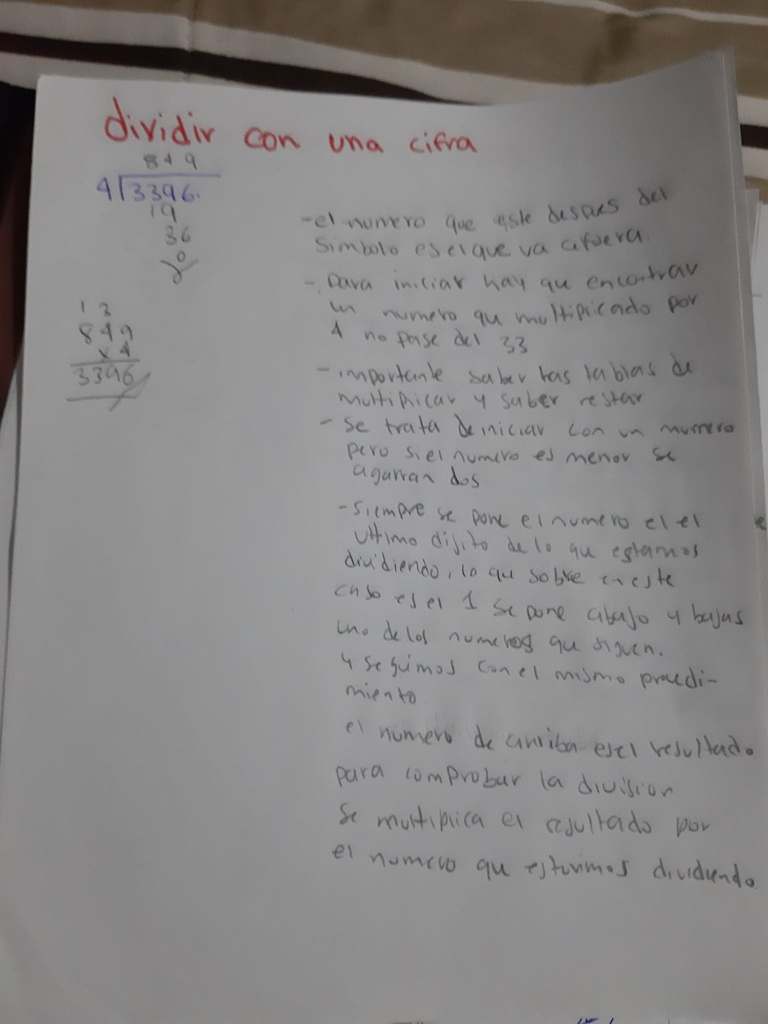 dividir con una cifra
849
4 3396.
19
36
0
- el numero que este despues del
simbolo es el que va afuera.
- para iniciar hay que encontrar
un numero que multiplicado por
4 no pase del 33
- importante saber las tablas de
multiplicar y saber restar
- se trata de iniciar con un numero
pero si el numero es menor se
agarran dos
- siempre se pone el numero el el
ultimo dijito de lo que estamos
dividiendo, lo que sobre en este
caso es el 1 se pone abajo y bajas
uno de los numeros que siguen.
y seguimos con el mismo procedi-
miento
el numero de arriba es el resultado
para comprobar la division
se multiplica el resultado por
el numero que estuvimos dividiendo
1 3
849
x4
3396